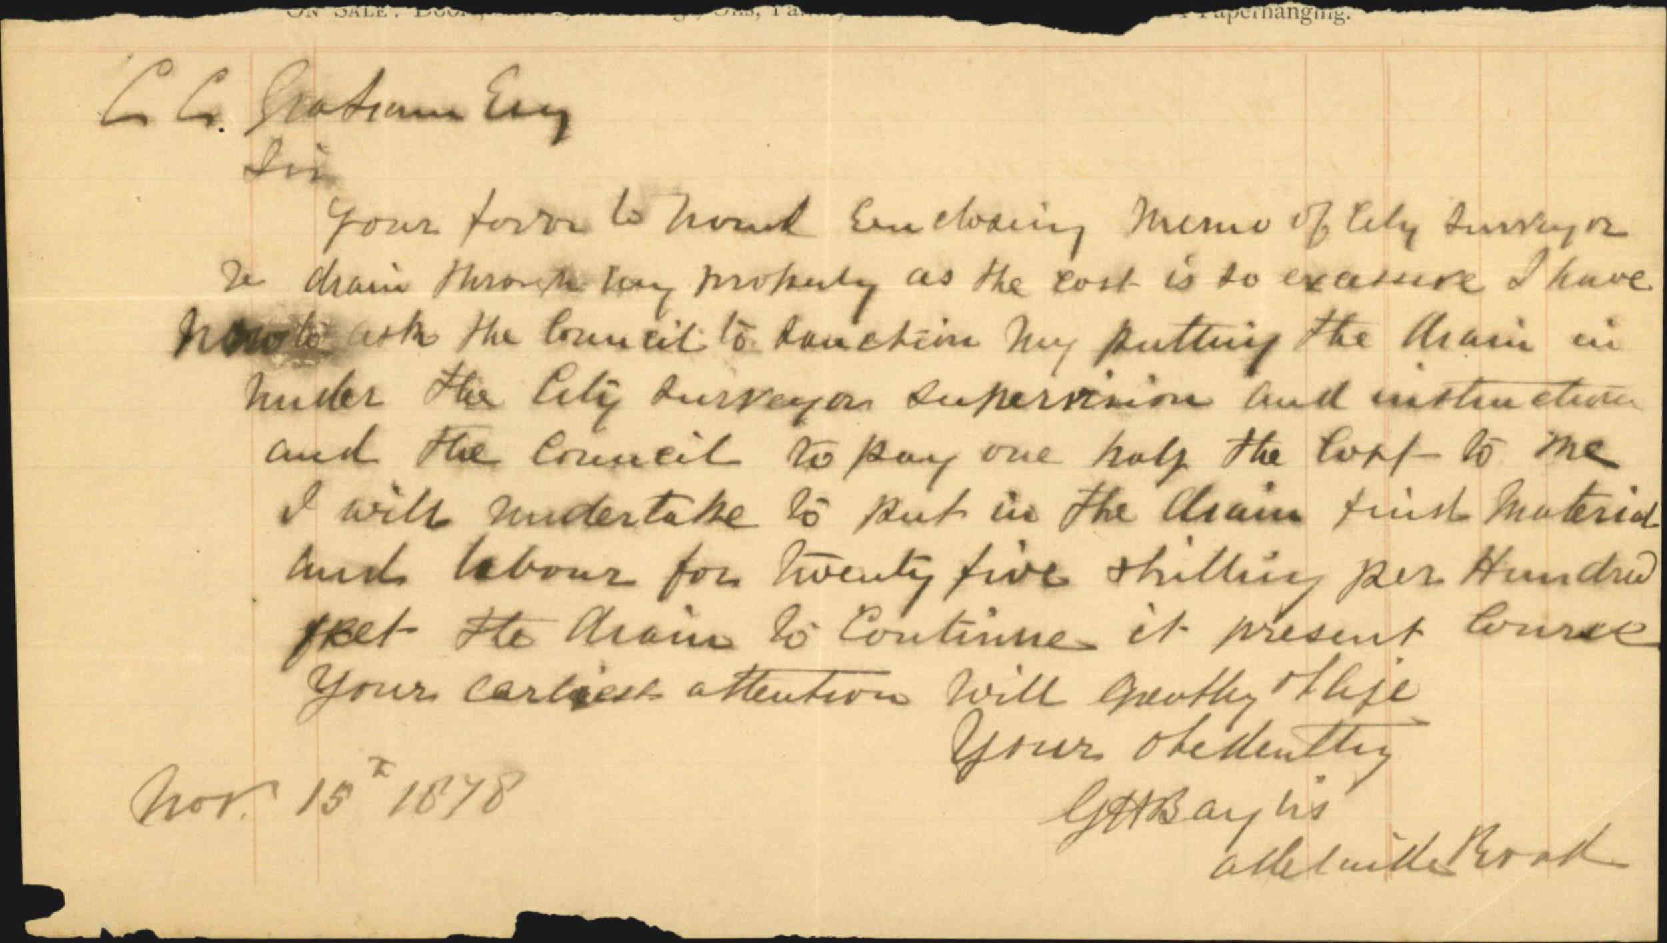 ON SALE: Paperhanging.
C. C. Graham Esq
Sir
Your favor to hand Enclosing Memo of City Surveyor
re drain through my property as the cost is so excessive I have
now to ask the Council to sanction my putting the drain in
under the City Surveyors supervision and instruction
and the Council to pay one half the Cost to me
I will undertake to put in the drain find Material
and labour for twenty five shilling per Hundred
feet the drain to Continue it present Course
Your earliest attention will greatly oblige
Yours obediently
Nov. 15th 1878
G H Baylis
Adelaide Road